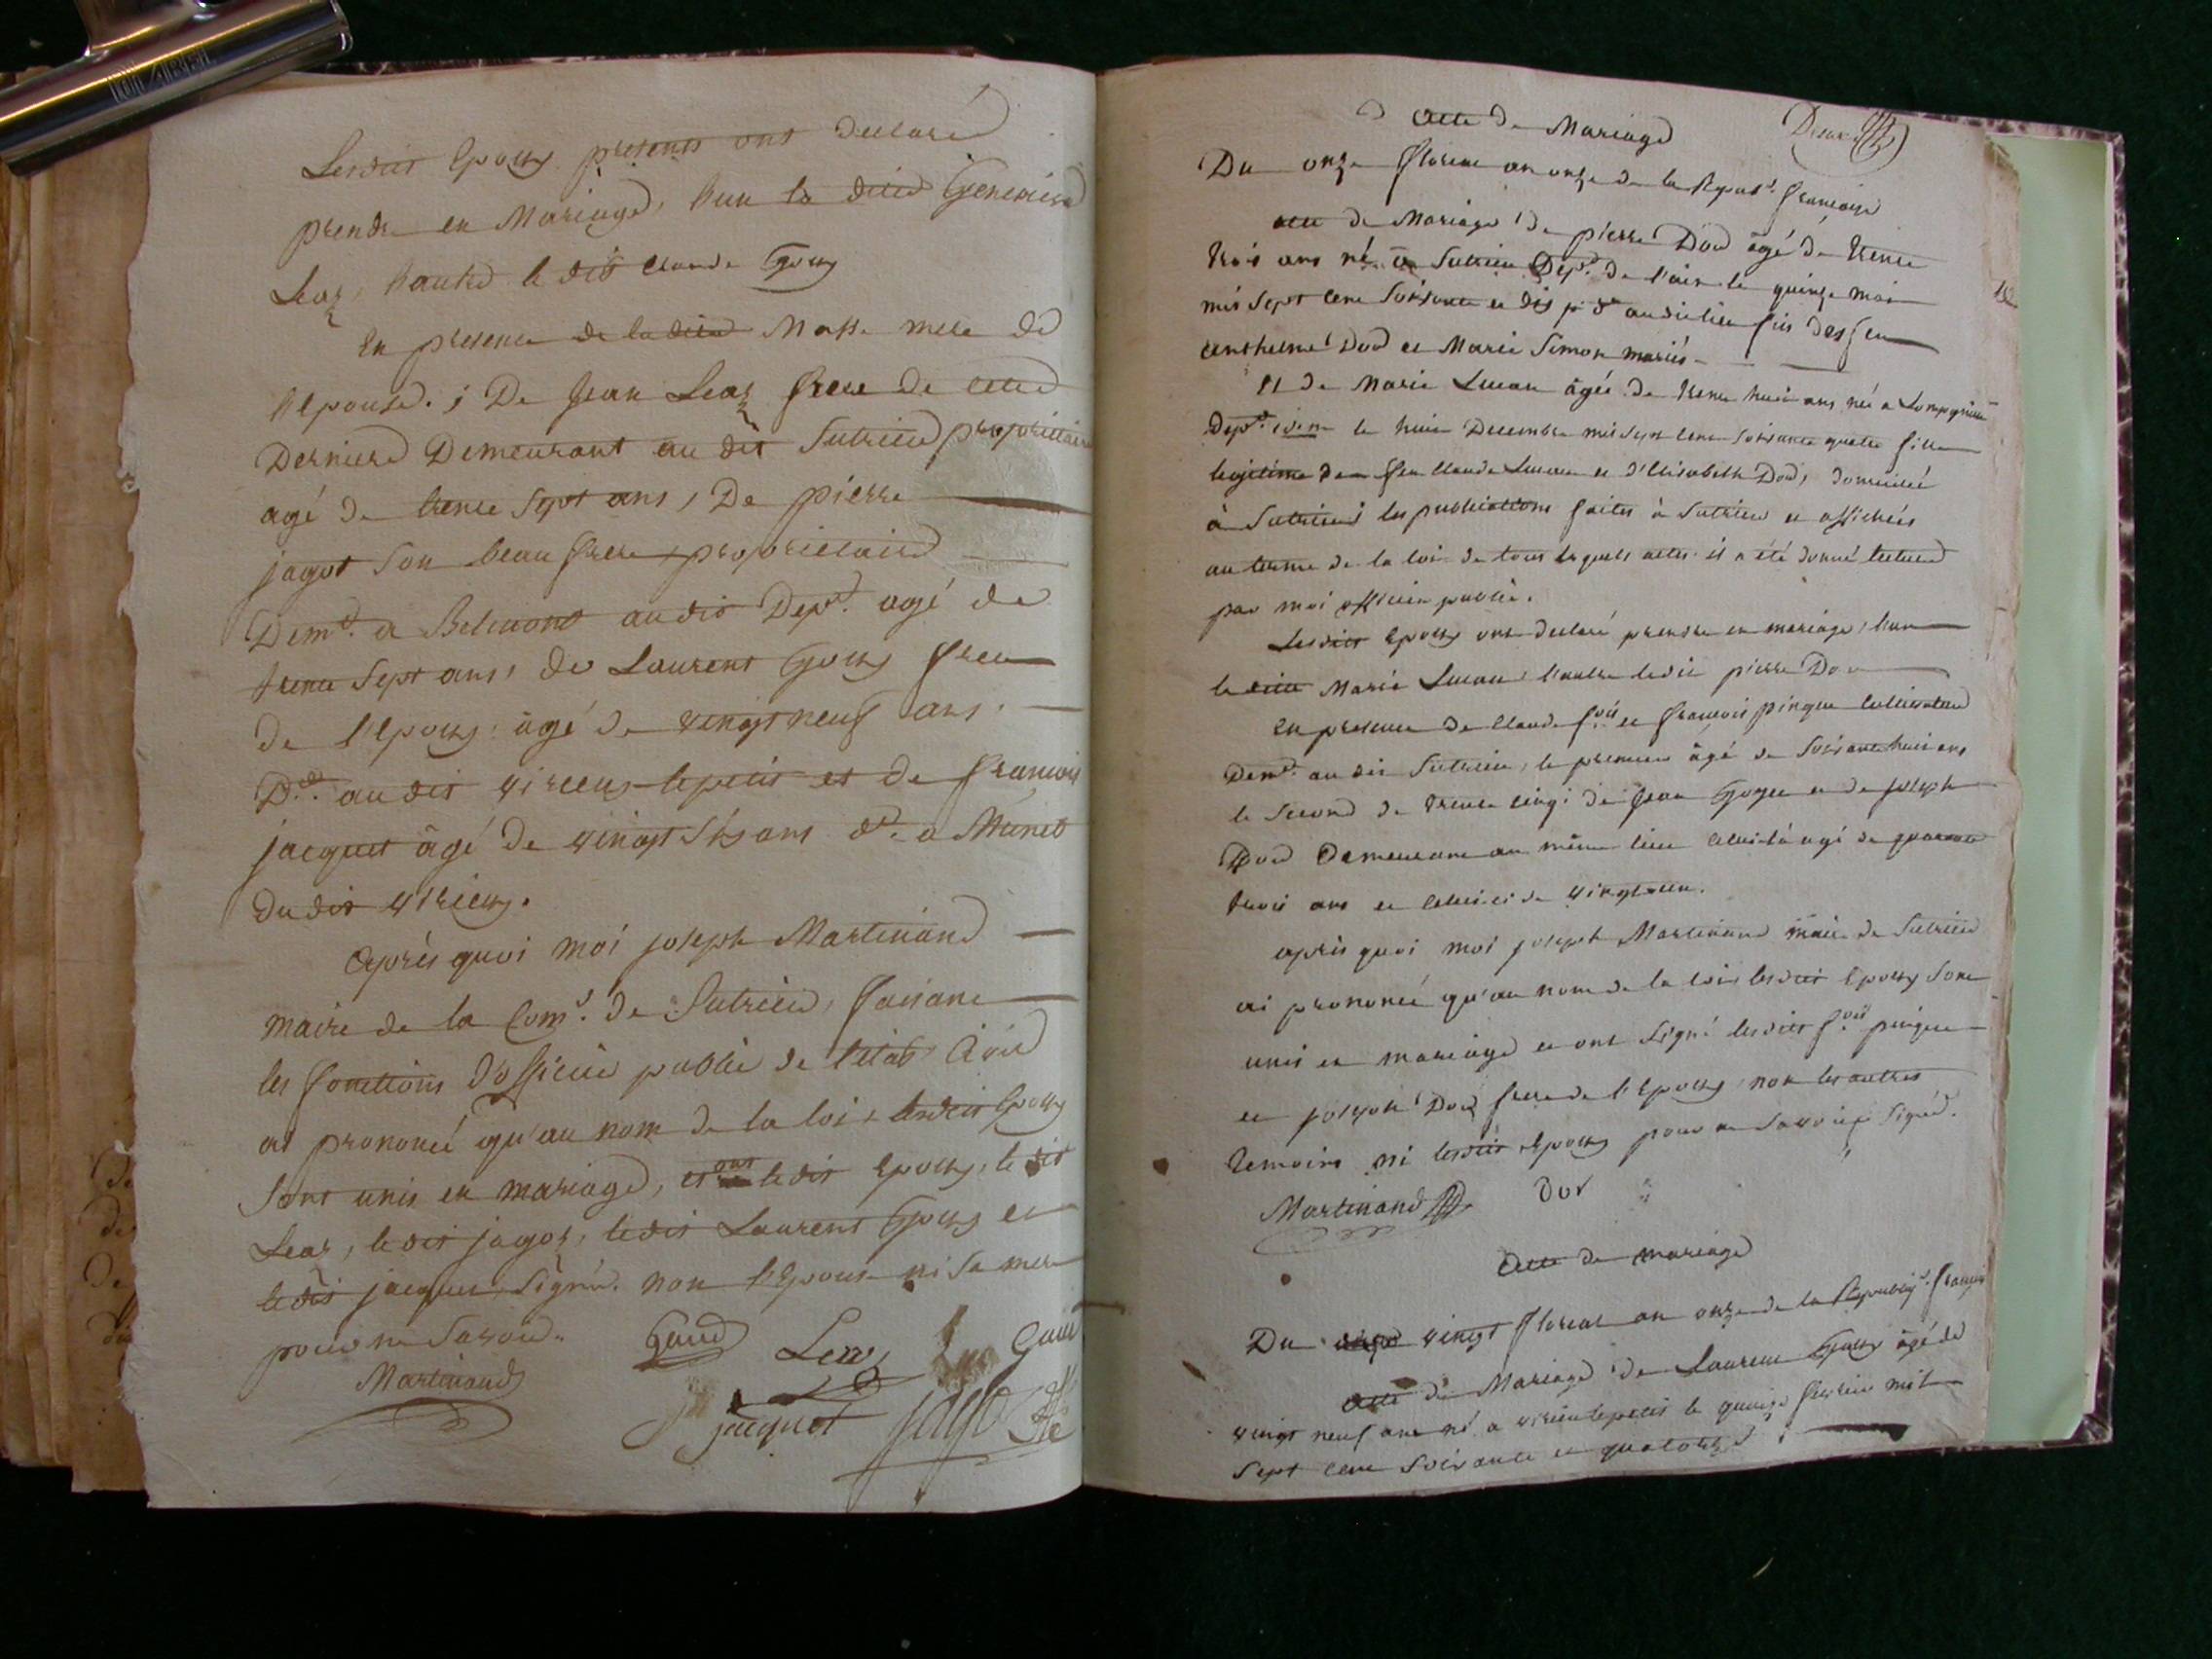 Lesdits Epoux presents ont declaré
prendre en Mariage, l'un la dite Genevieve
Lear, l'autre le dit Claude Goux
En presence de la dite Masse mere de
l'epouse. ; De Jean Lear frere de cette
Derniere Demeurant au dit Sutrieu propriétaire
agé de trente sept ans, De pierre
jagot son beau frere, propriétaire
Demt. a Belmont au dit Dept. agé de
trente sept ans, de Laurent Goux frere
de l'Epoux: âgé de vingt neuf ans.
Dt. au dit virieux-le petit et de francois
jacquet âgé de vingt six ans dt. a Munet
du dit virieux.
Après quoi moi joseph Martinand
maire de la Com.e de Sutrieu, faisant
les fonctions d'officier public de l'état Civil
ai prononcé qu'au nom de la loi, lesdits Epoux
sont unis en mariage, et ont le dit Epoux, le dit
Lear, le dit jagot, le dit Laurent Goux et
le dit jacquet, signé. non l'Epouse ni sa mere
pour ne savoir.
Martinand Lear
jacquet jagot
acte de Mariage
Du onze floreal an onze de la Repub.e francaise
acte de Mariage de pierre Dod âgé de trente
trois ans né a Sutrieu Dept. de l'ain le quinze mai
mil sept cent soixante et dix p.d au dit lieu fils des feu
anthelme Dod et Marie Simon mariés
et de Marie Lucan âgée de trente huit ans née a Lompnieu
Dept. idem le huit Decembre mil sept cent soixante quatre fille
legitime de feu Claude Lucan et d'Elisabeth Dod, domiciliée
à Sutrieu les publications faites à Sutrieu et affichées
au terme de la loi de tous lequels actes il a été donné lecture
par moi officier public.
Lesdits Epoux ont declaré prendre en mariage, l'un
la dite Marie Lucan, l'autre le dit pierre Dod
En presence de Claude et francois pingon cultivateurs
Demt. au dit Sutrieu, le premier âgé de soixante huit ans
le second de trente cinq; de Jean Goyet et de joseph
Dod Demeurant au même lieu celui-là agé de quarante
trois ans et celui-ci de vingt-un.
après quoi moi joseph Martinand maire de Sutrieu
ai prononcé qu'au nom de la loi lesdits Epoux sont
unis en mariage et ont signé lesdits pingon
et joseph Dod frere de l'Epoux, non les autres
temoins ni lesdits Epoux pour ne savoir signé.
Martinand Dod
acte de mariage
Du vingt floreal an onze de la Republiq.e francaise
acte de Mariage de Laurent Goux âgé de
vingt neuf ans né a virieu le petit le quinze fevrier mil
sept cent soixante et quatorze